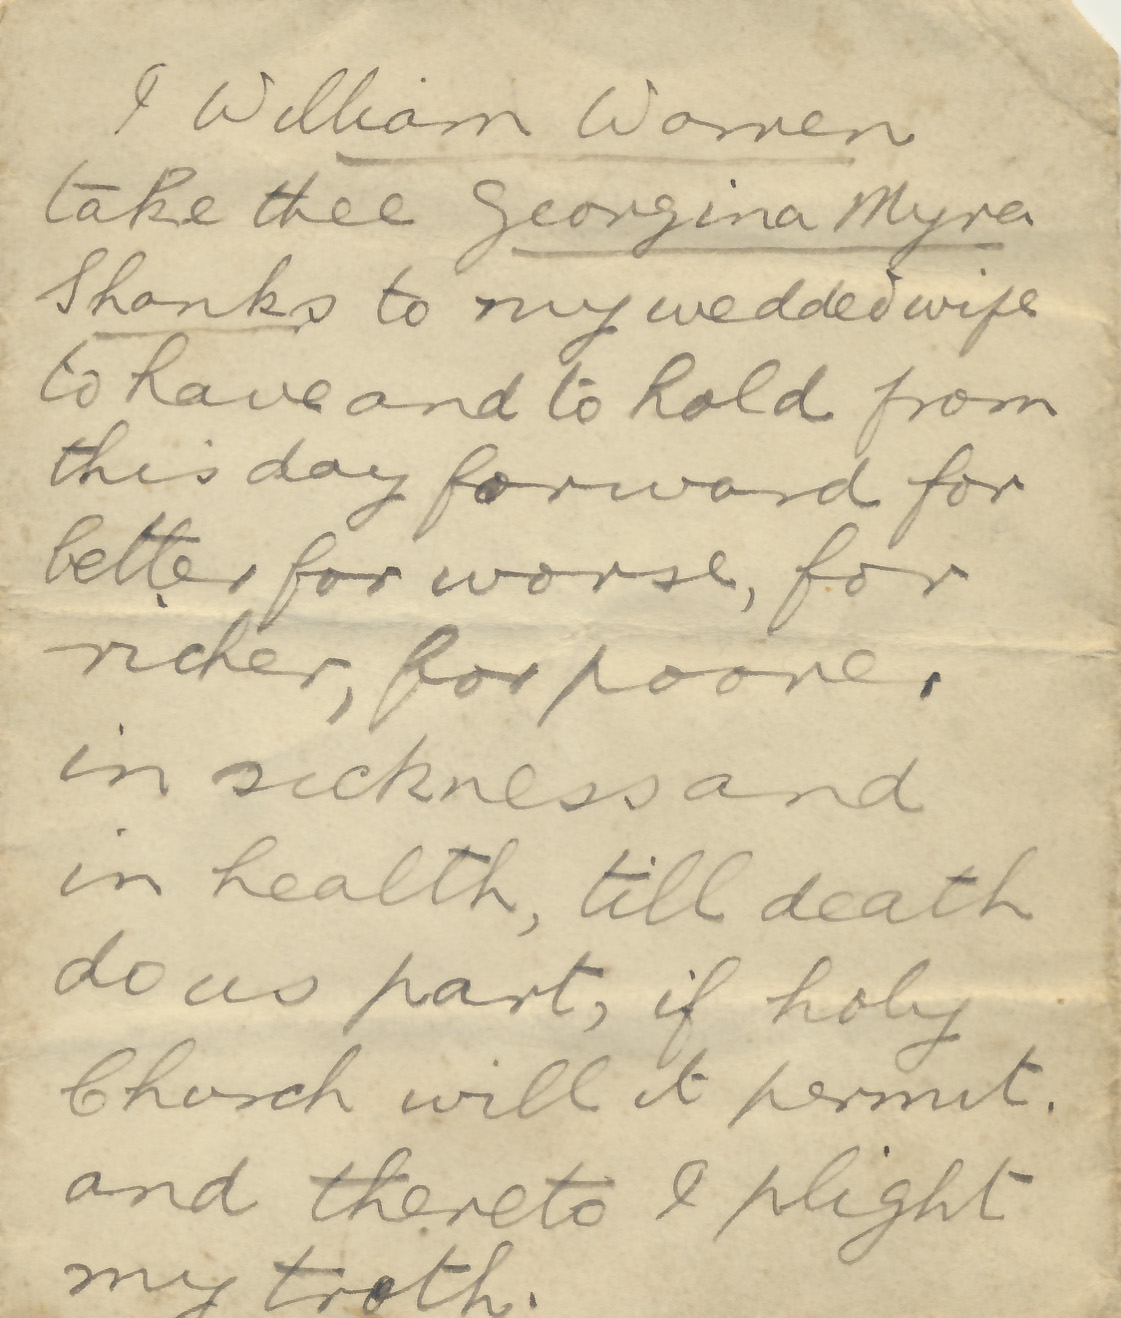 I William Warren
take thee Georgina Myra
Shanks to my wedded wife
to have and to hold from
this day forward for
better, for worse, for
richer, for poorer
in sickness and
in health, till death
do us part, if holy
Church will it permit.
and thereto I plight
my troth.